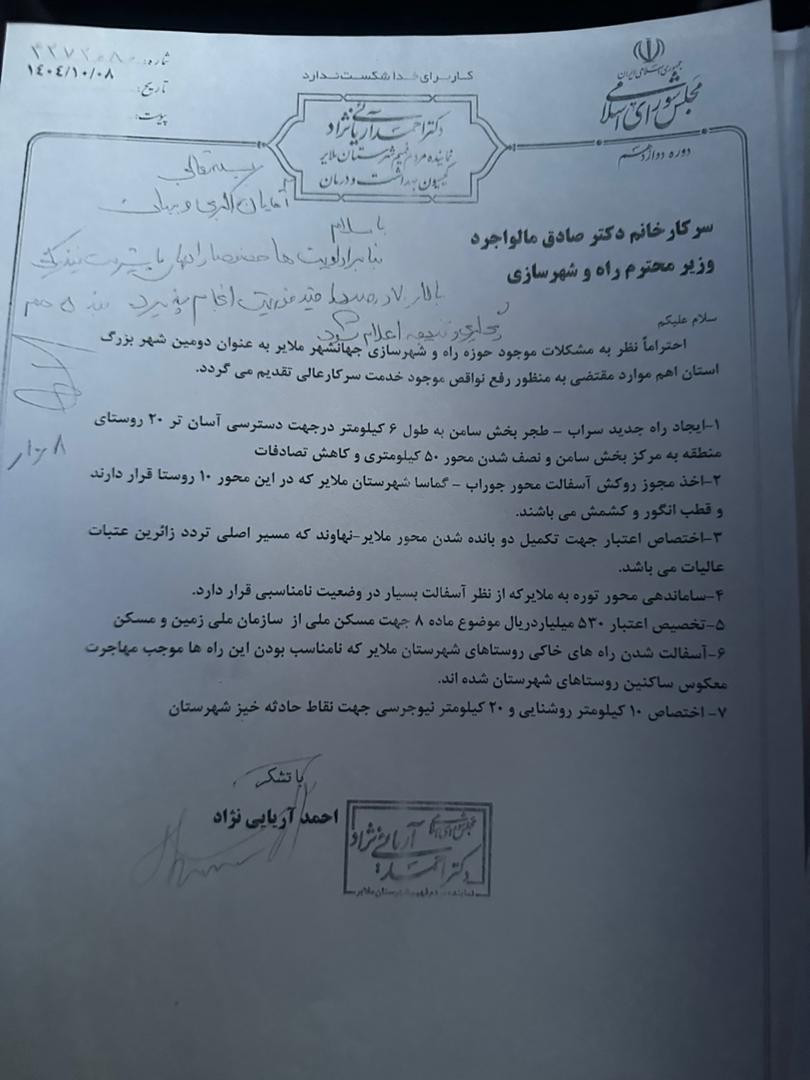 جمهوری اسلامی ایران
مجلس شورای اسلامی
دوره دوازدهم
کار برای خدا شکست ندارد
دکتر احمد آریایی نژاد
نماینده مردم فهیم شهرستان ملایر
کمیسیون بهداشت و درمان
شماره:
تاریخ: ۱۴۰۴/۱۰/۰۸
پیوست:
بسمه تعالی
آقایان اکبری و
با سلام
بنابر اولویت ها
انجام پذیرد
اعلام شود
سرکار خانم دکتر صادق مالواجرد
وزیر محترم راه و شهرسازی
سلام علیکم
احتراماً نظر به مشکلات موجود حوزه راه و شهرسازی جهانشهر ملایر به عنوان دومین شهر بزرگ
استان اهم موارد مقتضی به منظور رفع نواقص موجود خدمت سرکارعالی تقدیم می گردد.
۱-ایجاد راه جدید سراب - طجر بخش سامن به طول ۶ کیلومتر درجهت دسترسی آسان تر ۲۰ روستای
منطقه به مرکز بخش سامن و نصف شدن محور ۵۰ کیلومتری و کاهش تصادفات
۲-اخذ مجوز روکش آسفالت محور جوراب - گماسا شهرستان ملایر که در این محور ۱۰ روستا قرار دارند
و قطب انگور و کشمش می باشند.
۳-اختصاص اعتبار جهت تکمیل دو بانده شدن محور ملایر-نهاوند که مسیر اصلی تردد زائرین عتبات
عالیات می باشد.
۴-ساماندهی محور توره به ملایرکه از نظر آسفالت بسیار در وضعیت نامناسبی قرار دارد.
۵-تخصیص اعتبار ۵۳۰ میلیاردریال موضوع ماده ۸ جهت مسکن ملی از سازمان ملی زمین و مسکن
۶-آسفالت شدن راه های خاکی روستاهای شهرستان ملایر که نامناسب بودن این راه ها موجب مهاجرت
معکوس ساکنین روستاهای شهرستان شده اند.
۷- اختصاص ۱۰ کیلومتر روشنایی و ۲۰ کیلومتر نیوجرسی جهت نقاط حادثه خیز شهرستان
با تشکر
احمد آریایی نژاد
مجلس شورای اسلامی
دکتر احمد آریایی نژاد
نماینده مردم فهیم شهرستان ملایر